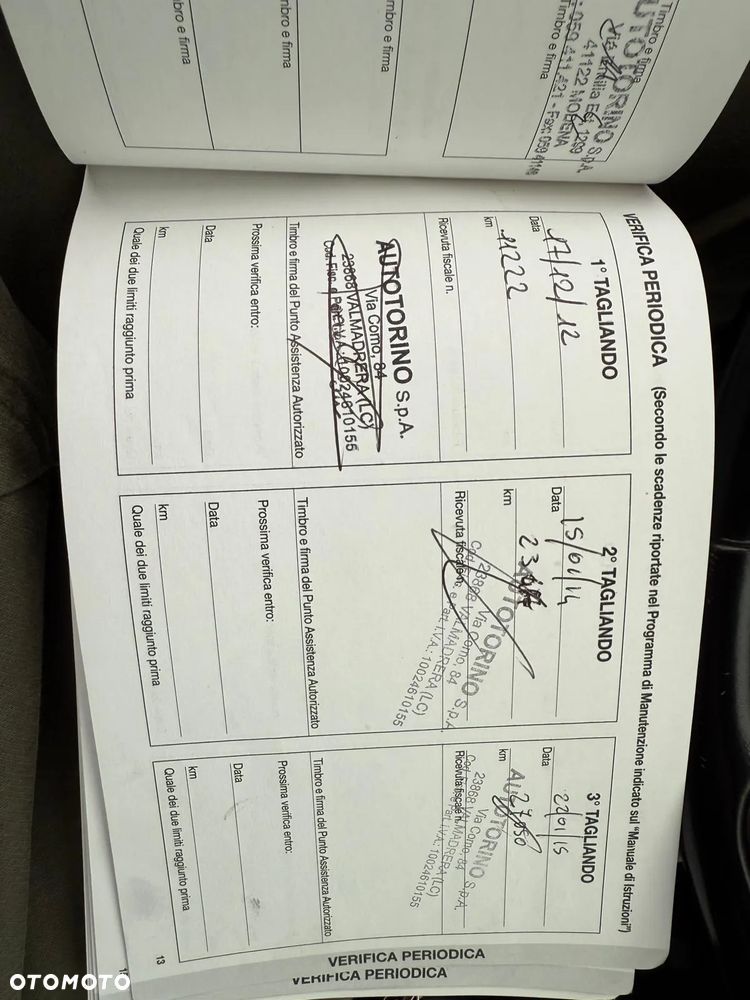 Timbro e firma
AUTOTORINO S.p.A.
Via Emilia Est, 1299
41122 MODENA
059 411 421 - Fax: 059 4114
Timbro e firma
Timbro e firma
Timbro e firma
mbro e firma
VERIFICA PERIODICA (Secondo le scadenze riportate nel Programma di Manutenzione indicato sul "Manuale di Istruzioni")
1° TAGLIANDO
Data 17/12/12
km 11222
Ricevuta fiscale n.
AUTOTORINO S.p.A.
Via Como, 84
23868 VALMADRERA (LC)
Cod. Fisc. e Part. I.V.A.: 10024610155
Timbro e firma del Punto Assistenza Autorizzato
Prossima verifica entro:
Data
km
Quale dei due limiti raggiunto prima
2° TAGLIANDO
Data 15/01/14
km
Ricevuta fiscale n.
AUTOTORINO S.p.A.
Via Como, 84
23868 VALMADRERA (LC)
Cod. Fisc. e Part. I.V.A.: 10024610155
Timbro e firma del Punto Assistenza Autorizzato
Prossima verifica entro:
Data
km
Quale dei due limiti raggiunto prima
3° TAGLIANDO
Data 22/01/15
km 27050
Ricevuta fiscale n.
AUTOTORINO S.p.A.
Via Como, 84
23868 VALMADRERA (LC)
Cod. Fisc. e Part. I.V.A.: 10024610155
Timbro e firma del Punto Assistenza Autorizzato
Prossima verifica entro:
Data
km
Quale dei due limiti raggiunto prima
13
VERIFICA PERIODICA
VERIFICA PERIODICA
OTOMOTO